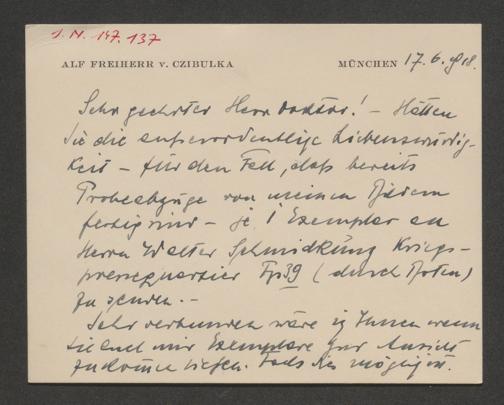 J.N. 147.137
ALF FREIHERR v. CZIBULKA MÜNCHEN 17.6.918.
Sehr geehrter Herr Doktor! – Hätten
Sie die außerordentliche Liebenswürdig-
keit – für den Fall, daß bereits
Probeabzüge von meinen Bildern
fertig sind – je 1 Exemplar an
Herrn Walter Schmidkunz Kriegs-
pressequartier Fp 39 (durch Boten)
zu senden. –
Sehr verbunden wäre ich Ihnen wenn
Sie auch mir Exemplare zur Ansicht
zukommen ließen. Falls dies möglich ist.